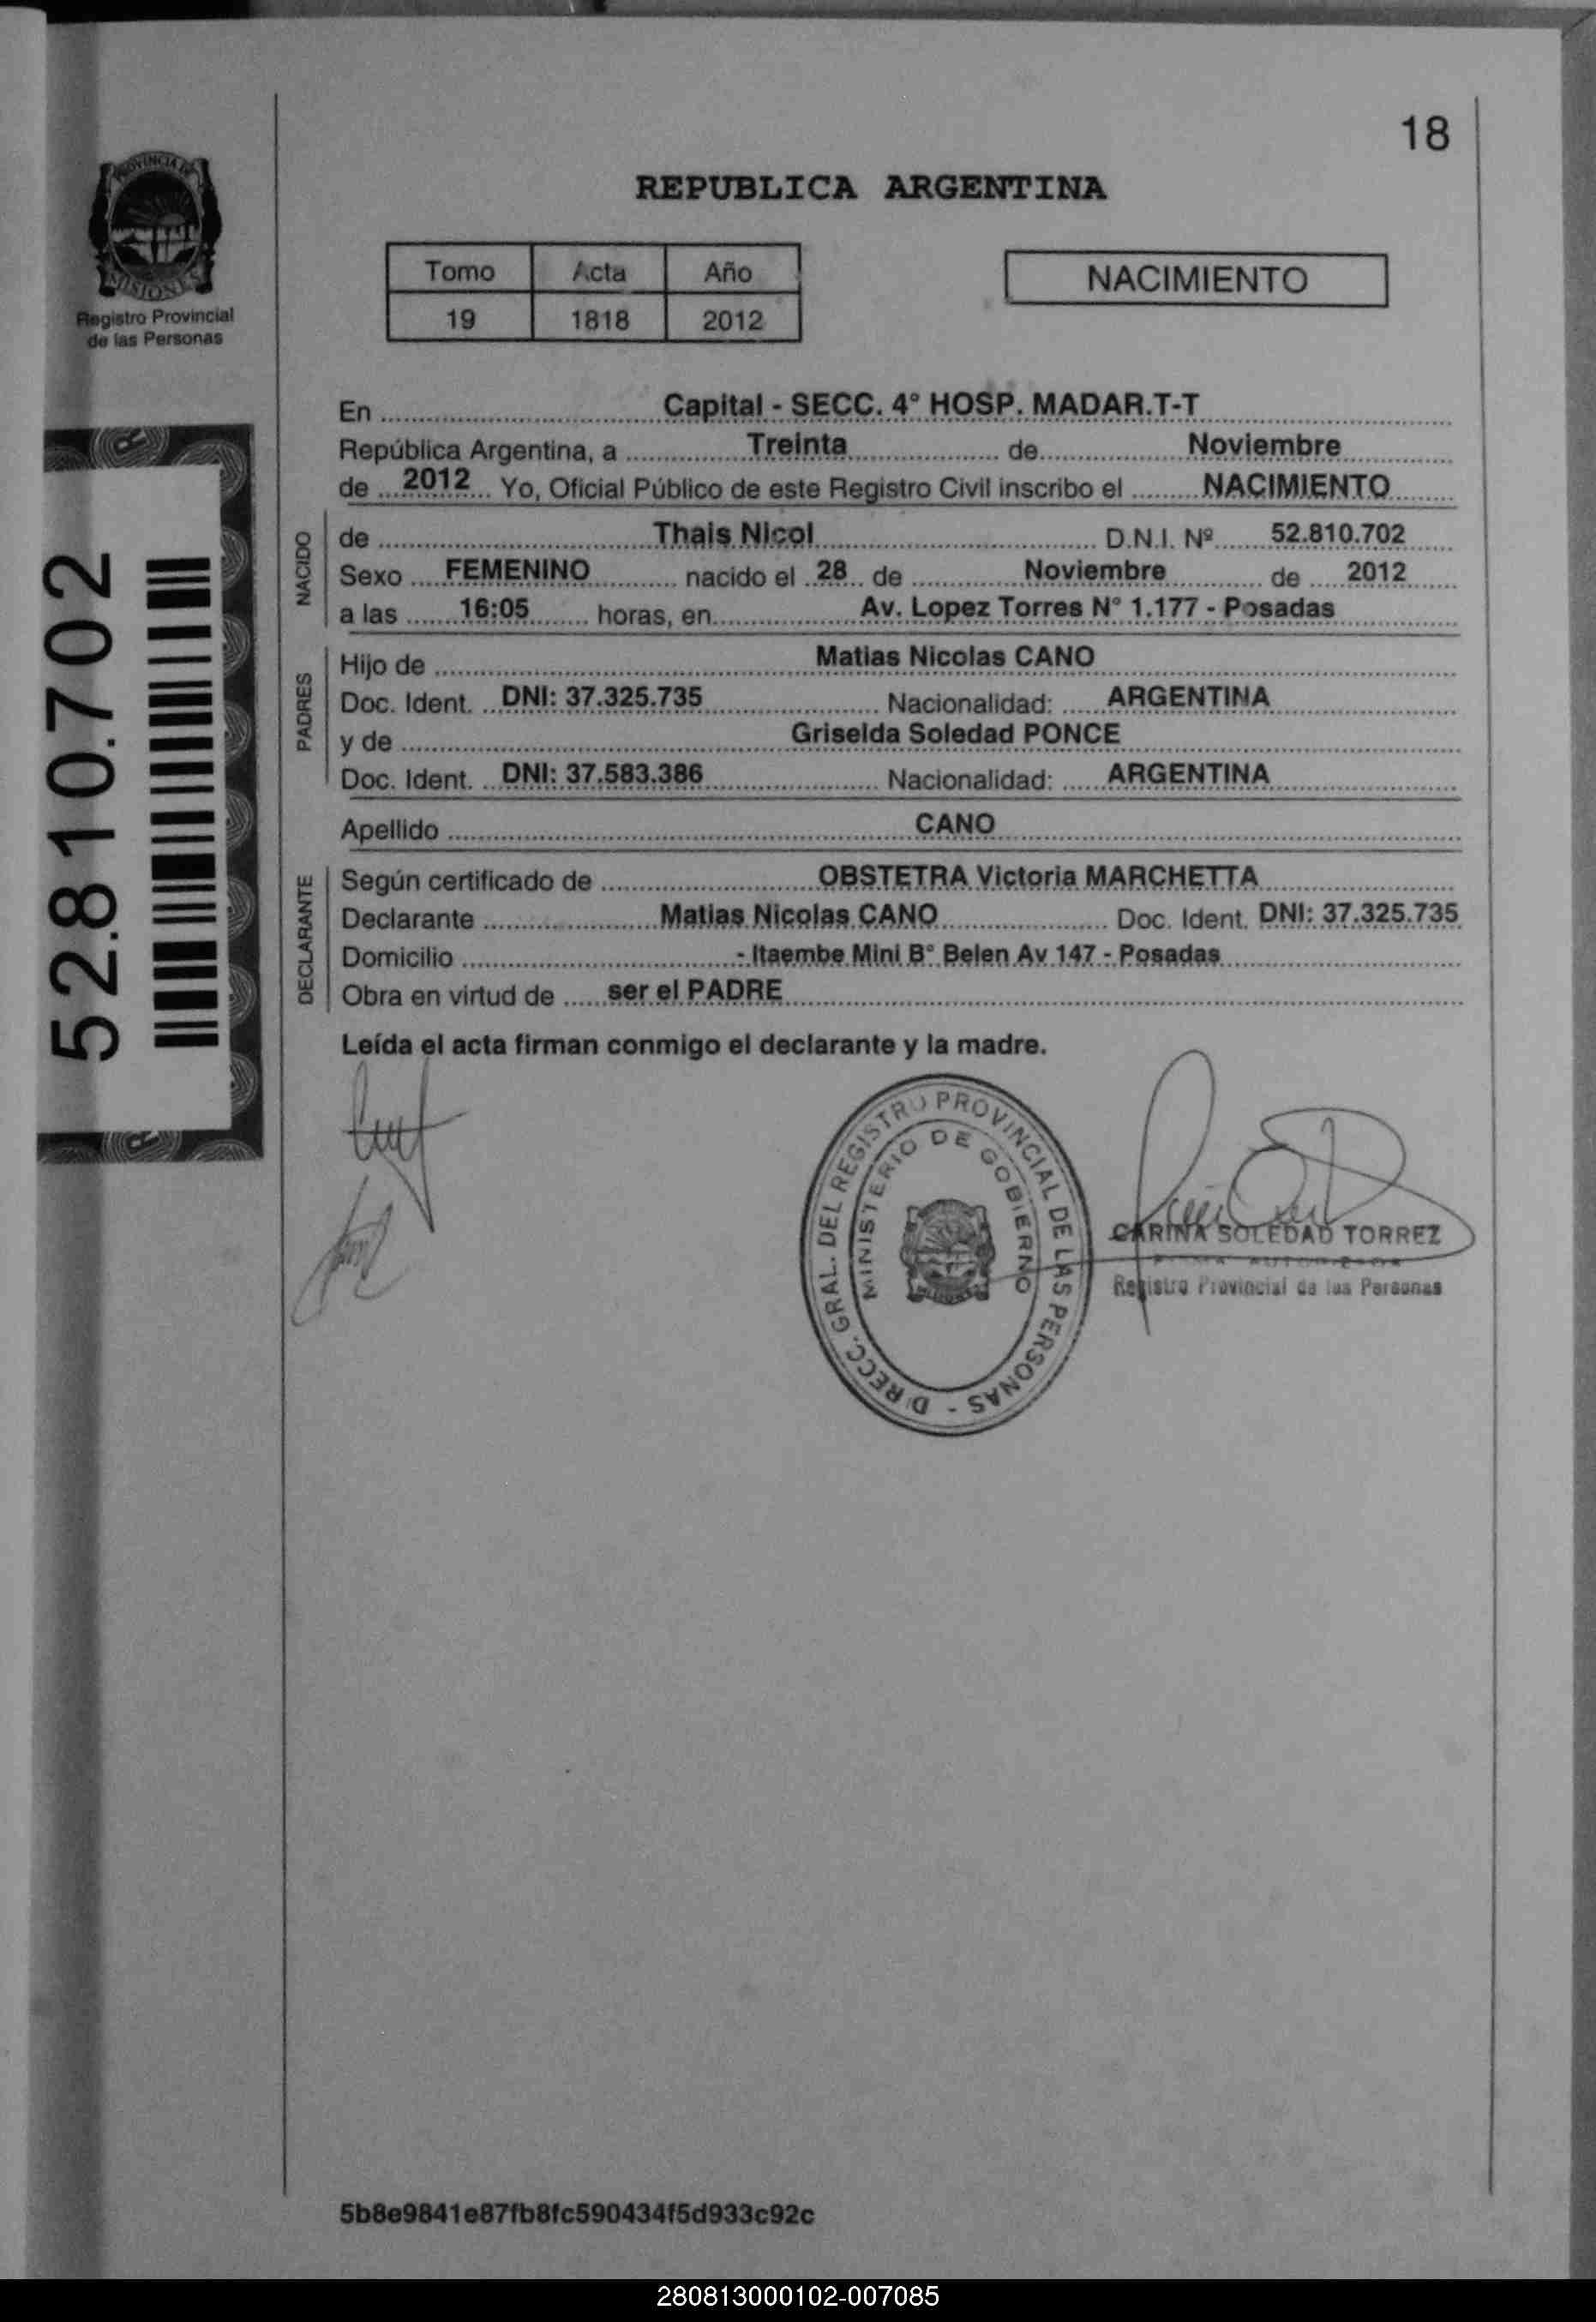 18
REPUBLICA ARGENTINA
PROVINCIA DE
MISIONES
Registro Provincial
de las Personas
Tomo Acta Año
19 1818 2012
NACIMIENTO
En Capital - SECC. 4° HOSP. MADAR.T-T
República Argentina, a Treinta de Noviembre
de 2012 Yo, Oficial Público de este Registro Civil inscribo el NACIMIENTO
NACIDO
de Thais Nicol D.N.I. Nº 52.810.702
Sexo FEMENINO nacido el 28 de Noviembre de 2012
a las 16:05 horas, en Av. Lopez Torres N° 1.177 - Posadas
PADRES
Hijo de Matias Nicolas CANO
Doc. Ident. DNI: 37.325.735 Nacionalidad: ARGENTINA
y de Griselda Soledad PONCE
Doc. Ident. DNI: 37.583.386 Nacionalidad: ARGENTINA
Apellido CANO
DECLARANTE
Según certificado de OBSTETRA Victoria MARCHETTA
Declarante Matias Nicolas CANO Doc. Ident. DNI: 37.325.735
Domicilio - Itaembe Mini B° Belen Av 147 - Posadas
Obra en virtud de ser el PADRE
Leída el acta firman conmigo el declarante y la madre.
52.810.702
DIRECC. GRAL. DEL REGISTRO PROVINCIAL DE LAS PERSONAS -
MINISTERIO DE GOBIERNO
CARINA SOLEDAD TORREZ
Registro Provincial de las Personas
5b8e9841e87fb8fc590434f5d933c92c
280813000102-007085